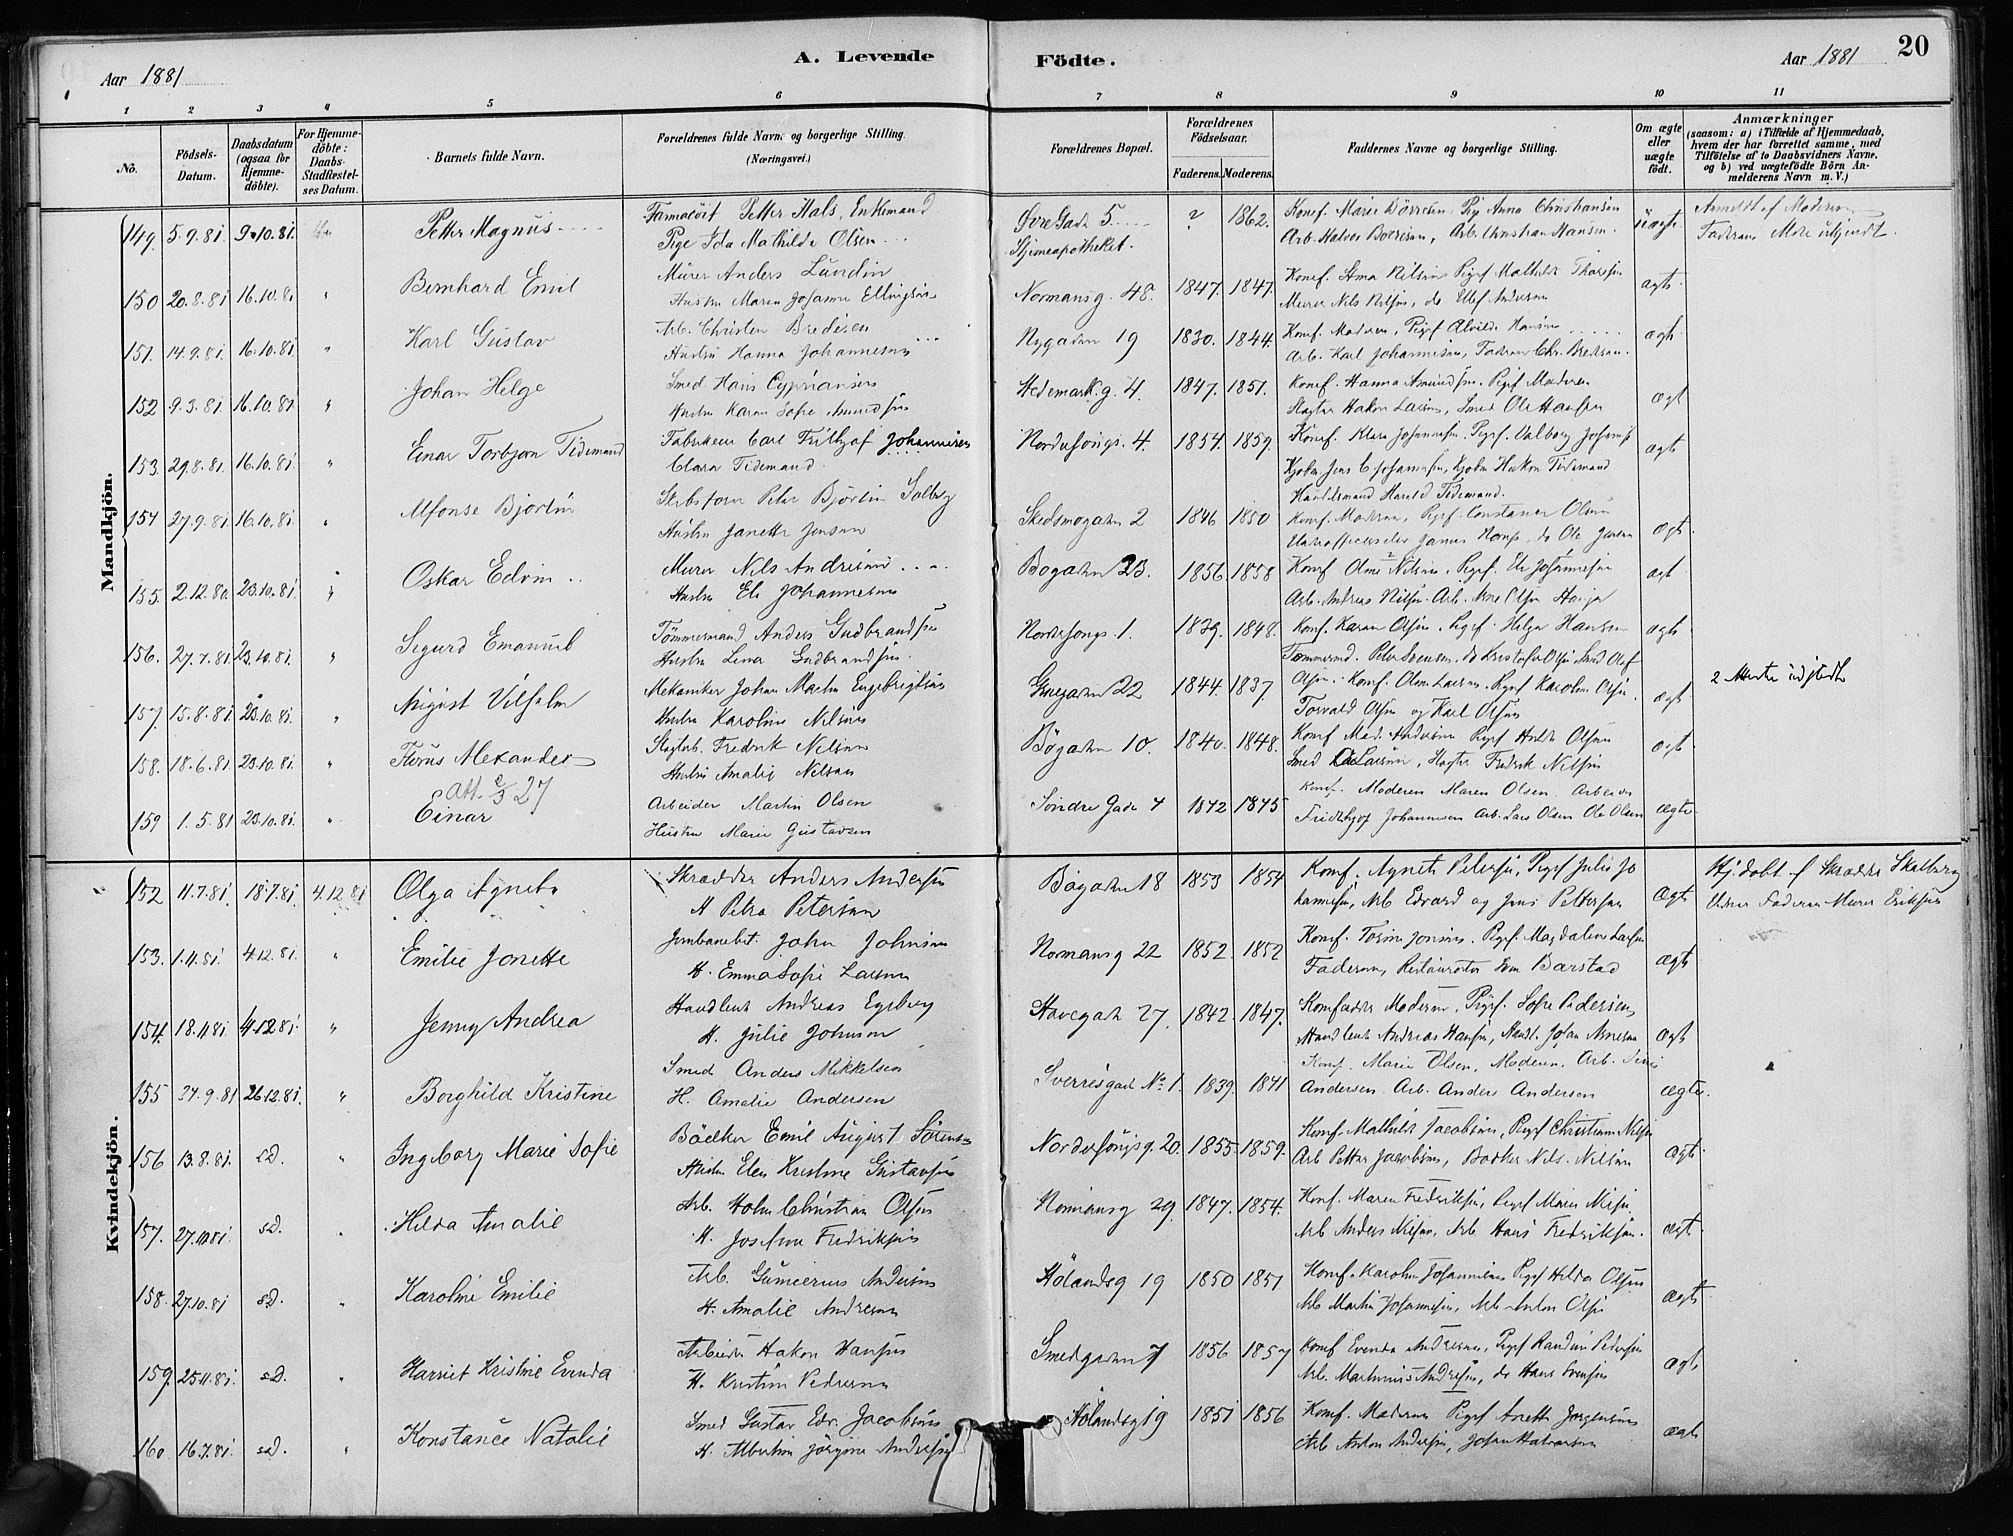 A. Levende Födte.
Aar 1881
Aar 1881 20
1 2 3 4 5 6 7 8 9 10 11
No.
Födsels-Datum.
Daabsdatum (ogsaa for Hjemme-döbte).
For Hjemme-döbte: Daabs-Stadfestel-ses Datum.
Barnets fulde Navn.
Forældrenes fulde Navne og borgerlige Stilling. (Næringsvei.)
Forældrenes Bopæl.
Forældrenes Födselsaar. Faderens. Moderens.
Faddernes Navne og borgerlige Stilling.
Om ægte eller uægte födt.
Anmærkninger (saasom: a) i Tilfælde af Hjemmedaab, hvem der har forrettet samme, med Tilföielse af to Daabsvidners Navne, og b) ved uægtefödte Börn An-melderens Navn m. V.)
Mandkjön.
149. 5.9.81 9.10.81. Petter Magnus Farmaceut Petter Hals, Enkemand Övre Gade 5 ? 1862. Konf. Marie Börresen, Pig Anna Christiansen uægte Anmeldt af Moderen
Pige Ida Mathilde Olsen Hjemeapotheket. Arb. Halvor Börresen, Arb. Christian Hansen. Faderen
150 20.8.81 16.10.81 " Bernhard Emil Murer Anders Lundin Normansg. 48. 1847. 1847. Konf. Anna Nilsen Pigef Mathilde Thoresen ægte
Hustru Maren Johanne Ellingsen Murer Nils Nilsen, do Ellef Andersen
151. 14.9.81. 16.10.81 " Karl Gustav Arb. Christen Bredesen Nygaden 19 1830. 1844. Konf. Moderen, Pigef Alvilde Hansen ægte
Hustru Hanna Johannesen Arb. Karl Johannesen, Faderen Chr. Bredesen.
152 9.3.81. 16.10.81 " Johan Helge Smed Hans Cypriansen Hedemarksg. 4. 1847. 1851. Konf. Hanna Amundsen. Pigef Moderen ægt
Hustru Karen Sofie Amundsen Slagter Hakon Larsen, Smed Ole Hansen
153 29.8.81. 16.10.81 " Einar Torbjørn Tidemand Fabrikeier Carl Frithjof Johannesen Nordrefongs. 4. 1854. 1859. Konf. Klara Johannesen. Pigef. Valborg Johans ægte
Clara Tidemand. Kjøbm. Jens C Johannesen, Kjøbm Hakon Tidemand
Handelsmand Harald Tidemand.
154 27.9.81 16.10.81. " Alfonse Bjortin Skibsforer Peter Bjørtin Solberg Skedsmogaden 2 1846 1850 Konf. Moderen, Pigef. Constance Olsen ægte
Hustru Janette Jensen Underofficerselev do Ole Jensen
155. 2.12.80. 23.10.81. " Oskar Edvin Murer Nils Andresen Bogaden 23. 1856. 1858 Konf Oline Nilsen. Pigef. Eli Johannesen ægt
Hustru Eli Johannesen Arb. Andreas Nilsen. Arb. Arne Olsen
156. 27.7.81. 23.10.81. " Sigurd Emanuel Tömmermand Anders Gudbrandsen Nordrefongs. 1. 1839. 1848. Konf. Karen Olsen. Pigef. Helga Hansen ægte
Hustru Lina Gudbrandsen. Tömmermd. Peter Svensen, do Kristofer Olsen Smed Olaf
157. 15.8.81 23.10.81. " August Vilhelm Mekaniker Johan Martin Engebrigtsen Gnegaden 22 1844. 1837. Olsen. Konf. Oline Larsen. Pigef Karoline Olsen. ægt 2 Atteste udstedte
Hustru Karoline Nilsen Torvald Olsen og Karl Olsen
158. 18.6.81 23.10.81. " Florus Alexander Slagterb. Fredrik Nilsen Bögaden 10. 1840. 1848. Konf Mad. Andersen. Pigef Hulda Olsen ægt
Att. 27 Hustru Amalie Nilsen Smed Larsen, Slagter Fredrik Nilsen
159 1.5.81 23.10.81. " Einar Arbeider Martin Olsen Söndre Gade 4 1842 1845 Konf. Moderen Maren Olsen. Arbeider ægte
Hustru Marie Gustavsen Fridthjof Johannesen Arb. Lars Olsen Ole Olsen
Kvindekjön.
152 11.7.81. 18.7.81 4.12.81 Olga Agneta Skrædder Anders Andersen Bögaden 18 1853 1854 Konf. Agnete Petersen, Pigef Julie Jo ægte Hj. döbt af Skrædder Skalberg
H Petra Petersen hannesen, Arb Edvard og Jens Pettersen Vidner Faderen Murer Eriksen
153. 1.11.81. 4.12.81. " Emilie Jonette Jernbanebet. John Johnsen Normansg 22 1852. 1852 Konf. Torine Jonsen. Pigef. Magdalene Larsen ægte
H. Emma Sofie Larsen Faderen, Restauratør Barstad
154. 18.11.81 4.12.81. " Jenny Andrea Handlende Andreas Egeberg Havegaden 27. 1842. 1847. Moderen, Pigef. Sofie Pedersen, ægt
H. Julie Johnsen Handlende Andreas Hansen, Handl. Johan Arnesen
155 27.9.81 26.12.81. " Borghild Kristine Smed Anders Mikkelsen Sverresgade No 1. 1839. 1841 Konf. Marie Olsen, Moderen, Arb. ægte.
H. Amalie Andersen Andersen. Arb. Anders Andersen
156 13.8.81. sd. " Ingeborg Marie Sofie Bödker Emil August Sörensen Nordrefongsg. 20. 1855. 1859. Konf. Mathilde Jacobsen, Pigef Christiane Nilsen ægte
Hustru Elen Kristine Gustavsen Arb Petter Jacobsen, Bödker Nils Nilsen
157. 27.10.81. sd. " Hilda Amalie Arb. Holm Christian Olsen Normansg 29. 1847. 1854. Konf. Maren Fredriksen, Pigef Maren Nilsen, ægt
H. Josefine Fredriksen Arb Anders Nilsen, Arb. Hans Fredriksen.
158. 27.10.81 sd. " Karoline Emilie Arb. Gunerius Andersen Hölandsg 19 1850 1851 Konf. Karoline Johannesen Pigef Hilda Olsen ægte
H. Amalie Andresen Arb Martin Johannesen, Arb Anton Olsen
159. 25.11.81. sd. " Harriet Kristine Evinda Arbeider Hakon Hansen Smedgaden 7 1856 1857 Konf Evenda Andresen, Pigef Randine Pedersen ægt
H. Kristine Pedersen Arb. Martinius Andresen, do Hans Svensen
160 16.7.81. sd. " Konstance Natalie Smed Gustav Edv. Jacobsen Hölandsg 19 1851 1856 Konf. Moderen Pigef Anette Jörgensen ægte
H. Albertine Jörgine Andresen Arb Anton Andresen, Johan Halvorsen